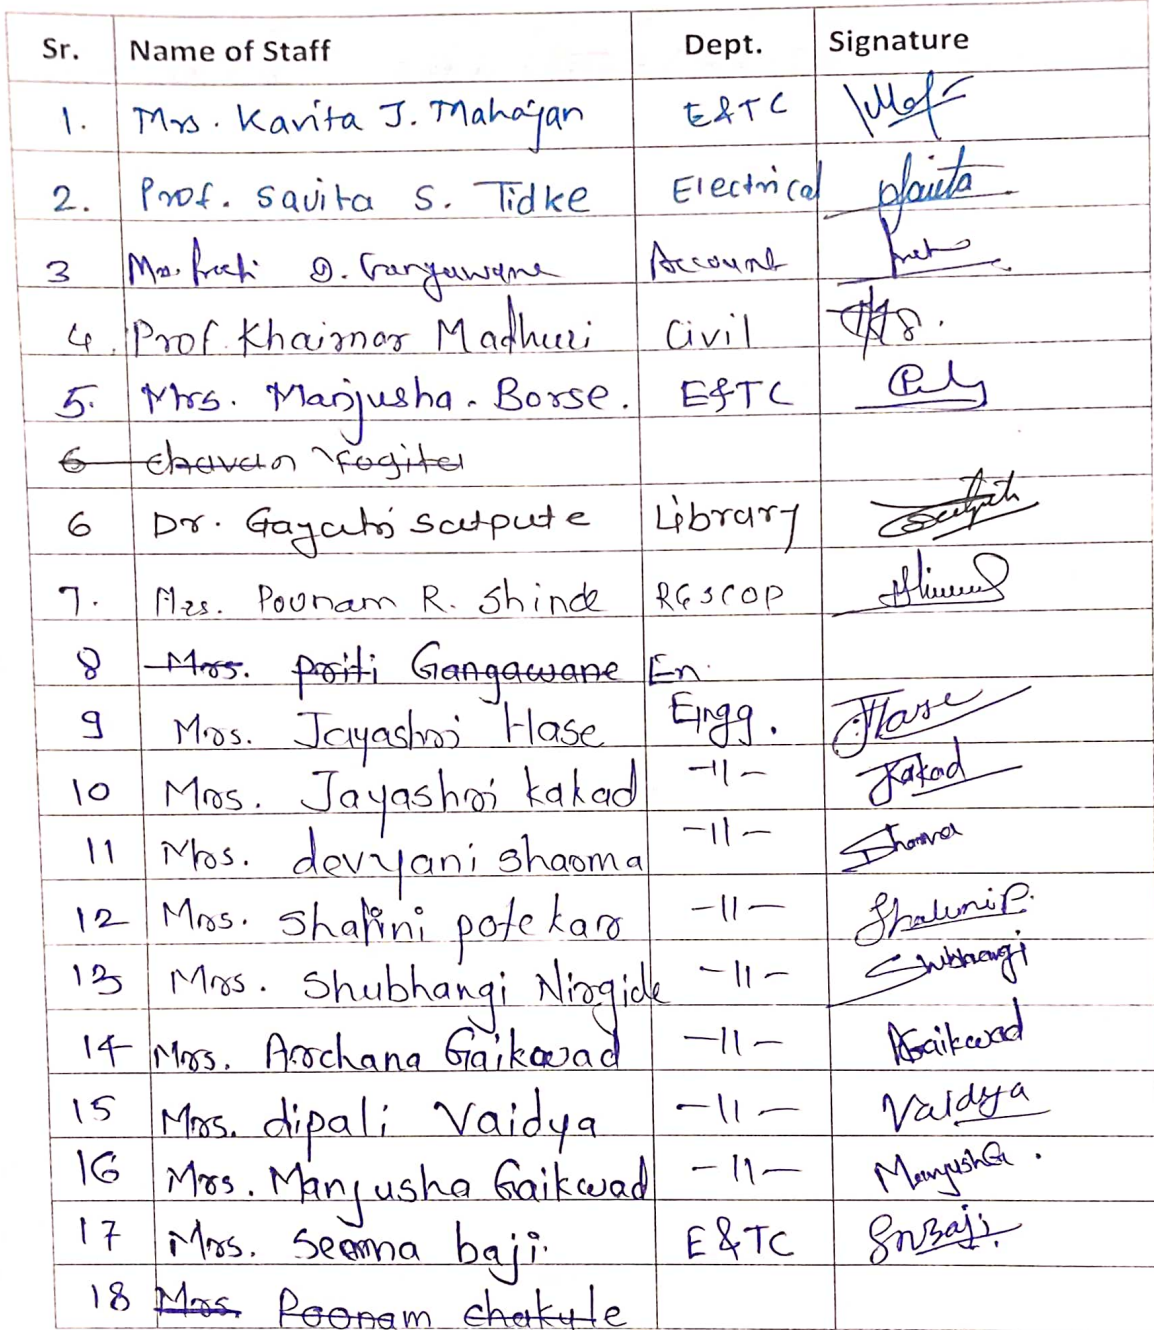 Sr. Name of Staff Dept. Signature
1. Mrs. Kavita J. Mahajan E&TC
2. Prof. Savita S. Tidke Electrical Savita
3 D. Gangawane Account
4. Prof. Khairnar Madhuri Civil
5. Mrs. Manjusha. Borse. E&TC
6 Chavan Yogita
6 Dr. Gayatri Satpute Library
7. Mrs. Poonam R. Shinde RGSCOP
8 Mrs. Priti Gangawane En.
9 Mrs. Jayashri Hase Engg. JHase
10 Mrs. Jayashri kakad -11- Jkakad
11 Mrs. devyani Sharma -11- Sharma
12 Mrs. Shalini potekar -11- ShaliniP.
13 Mrs. Shubhangi Nirgide -11- Shubhangi
14 Mrs. Archana Gaikwad -11- AGaikwad
15 Mrs. dipali Vaidya -11- Vaidya
16 Mrs. Manjusha Gaikwad -11- ManjushaG.
17 Mrs. Seema baji. E&TC SNBaji.
18 Mrs. Poonam chakule